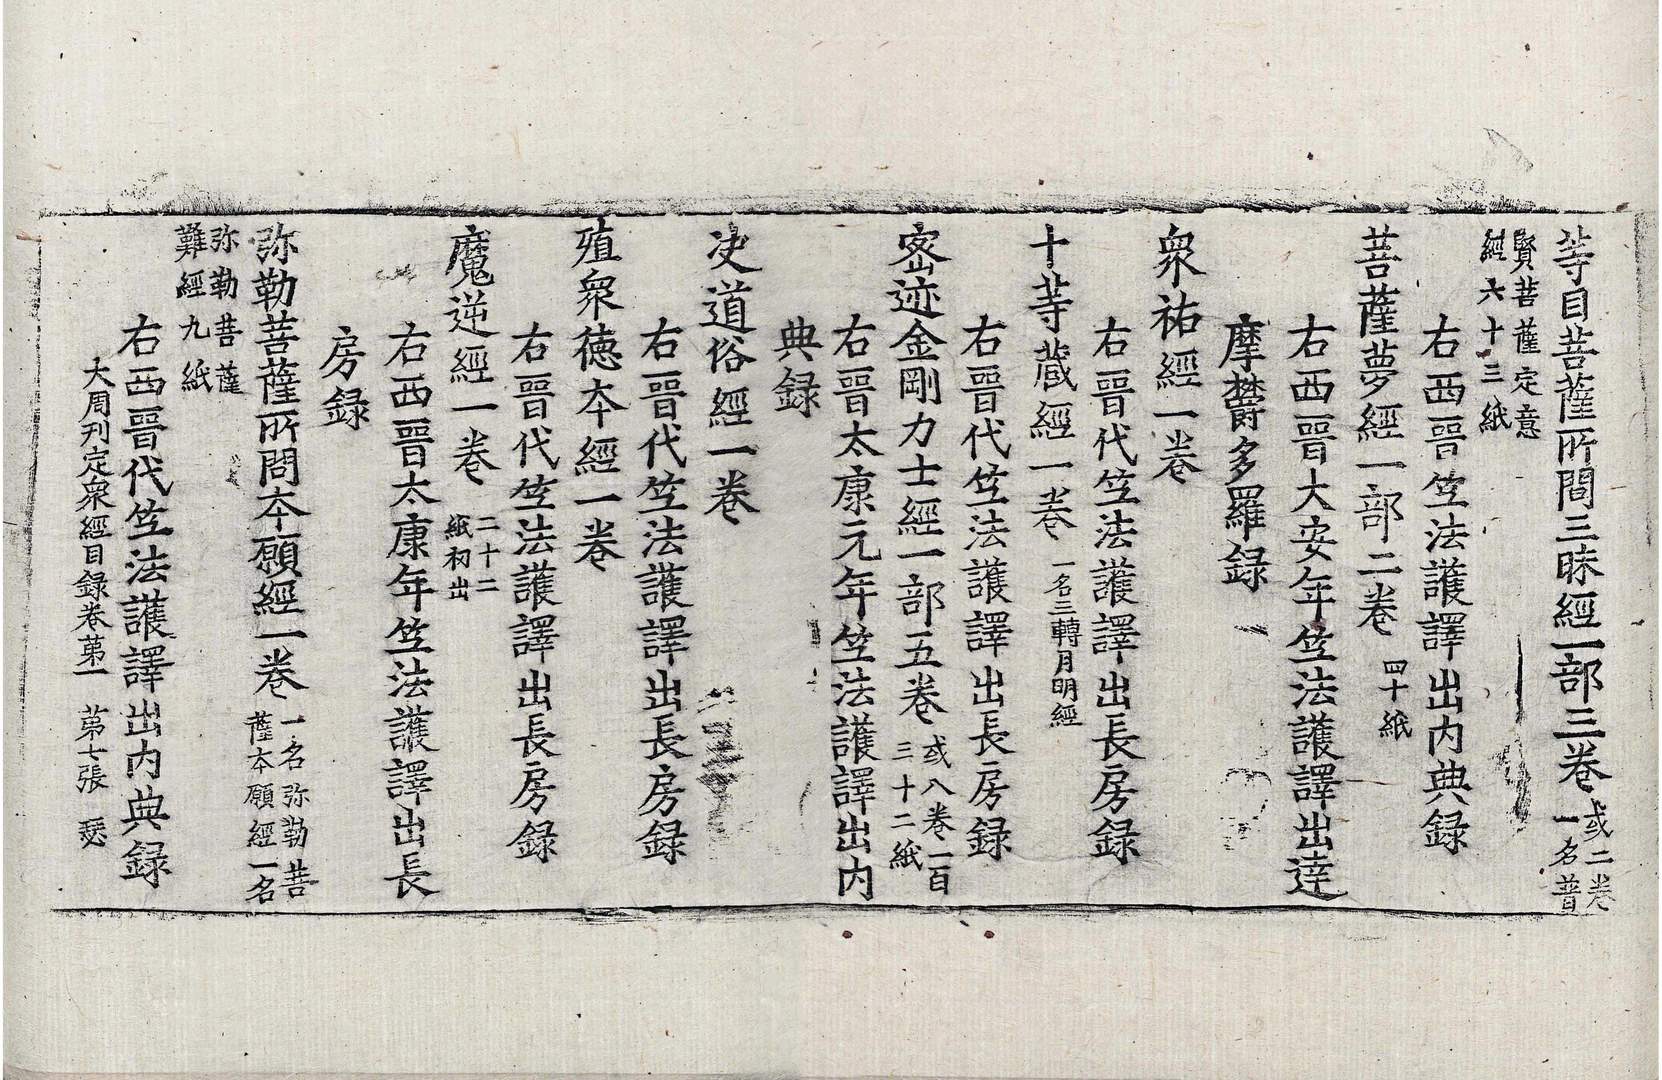 等目菩薩所問三昧經一部三卷 或二卷一名普
賢菩薩定意經六十三紙
右西晉竺法護譯出內典録
菩薩夢經一部二卷 四十紙
右西晉大安年竺法護譯出達
摩欝多羅録
衆祐經一卷
右晉代竺法護譯出長房録
十等藏經一卷 一名三轉月明經
右晉代竺法護譯出長房録
密迹金剛力士經一部五卷 或八卷一百三十二紙
右晉太康元年竺法護譯出内
典録
决道俗經一卷
右晉代竺法護譯出長房録
殖衆德本經一卷
右晉代竺法護譯出長房録
魔逆經一卷 二十二紙初出
右西晉太康年竺法護譯出長
房録
弥勒菩薩所問本願經一卷 一名弥勒菩薩本願經一名
弥勒菩薩難經九紙
右西晉代竺法護譯出内典録
大周刊定衆經目録卷第一 第七張 瑟